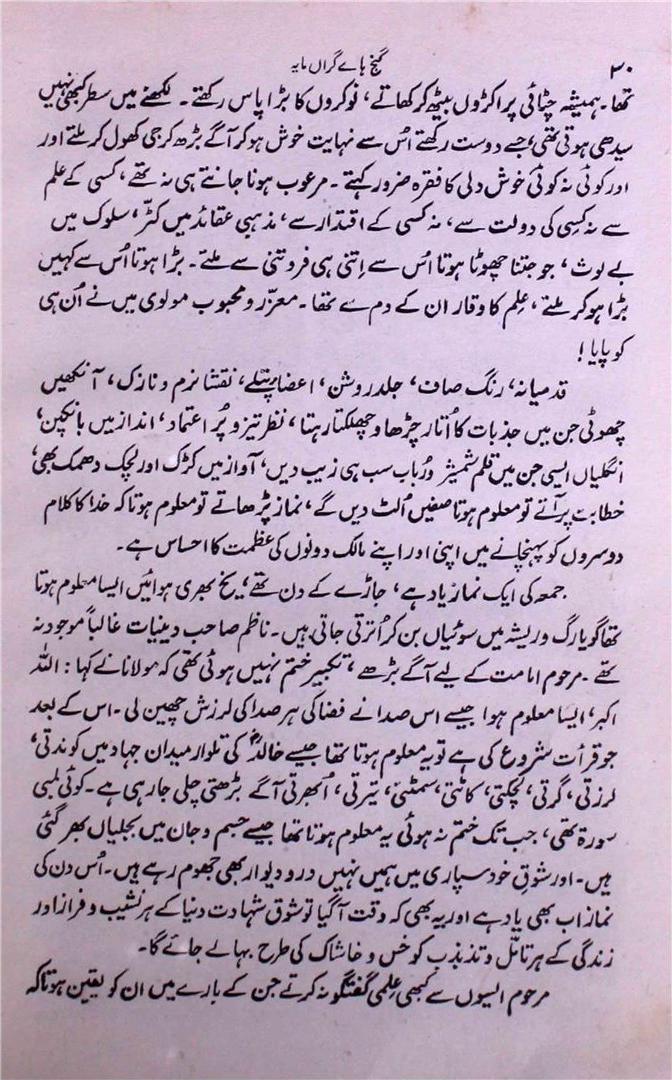 ۳۰
گنج ہاے گراں مایہ
تھا۔ ہمیشہ چٹائی پر اکڑوں بیٹھ کر کھاتے، نوکروں کا بڑا پاس رکھتے۔ لکھنے میں سطر کبھی نہیں
سیدھی ہوتی تھی، جسے دوست رکھتے اُس سے نہایت خوش ہو کر آگے بڑھ کر جی کھول کر ملتے اور
اور کوئی نہ کوئی خوش دلی کا فقرہ ضرور کہتے۔ مرعوب ہونا جانتے ہی نہ تھے، کسی کے علم
سے نہ کسِی کی دولت سے، نہ کسی کے اقتدار سے، مذہبی عقائد میں کٹّر، سلوک میں
بے لوث، جو جتنا چھوٹا ہوتا اُس سے اِتنی ہی فروتنی سے ملتے۔ بڑا ہوتا اُس سے کہیں
بڑا ہو کر ملتے، عِلم کا وقار ان کے دم سے تھا۔ معزّز و محبوب مولوی میں نے اُن ہی
کو پایا!
قد میانہ، رنگ صاف، جلد روشن، اعضا پتلے، نقشا نرم و نازک، آنکھیں
چھوٹی جن میں جذبات کا اُتار چڑھاو چھلکتا رہتا، نظر تیز و پُر اعتماد، انداز میں بانکپن،
انگلیاں ایسی جن میں قلم شمشیر و رُباب سب ہی زیب دیں، آواز میں کڑک اور لچک دھمک بھی،
خطابت پر آتے تو معلوم ہوتا صفیں اُلٹ دیں گے، نماز پڑھاتے تو معلوم ہوتا کہ خدا کا کلام
دوسروں کو پہنچانے میں اپنی اور اپنے مالک دونوں کی عظمت کا احساس ہے۔
جمعہ کی ایک نماز یاد ہے، جاڑے کے دن تھے، یخ بھری ہوائیں ایسا معلوم ہوتا
تھا گویا رگ و ریشہ میں سوئیاں بن کر اُترتی جاتی ہیں۔ ناظم صاحب دینیات غالباً موجود نہ
تھے۔ مرحوم امامت کے لیے آگے بڑھے، تکبیر ختم نہیں ہوئی تھی کہ مولانا نے کہا: اللہ
اکبر، ایسا معلوم ہوا جیسے اس صدا نے فضا کی ہر صدا کی لرزش چھین لی۔ اس کے بعد
جو قرأت شروع کی ہے تو یہ معلوم ہوتا تھا جیسے خالدؓ کی تلوار میدان جہاد میں کوندتی،
لرزتی، گرتی، لچکتی، کاٹتی، سمٹتی، تیرتی، اُبھرتی آگے بڑھتی چلی جا رہی ہے۔ کوئی لمبی
سورۃ تھی، جب تک ختم نہ ہوئی یہ معلوم ہوتا تھا جیسے جسم و جان میں بجلیاں بھر گئی
ہیں۔ اور شوقِ خود سپاری میں ہمیں نہیں در و دیوار بھی جھوم رہے ہیں۔ اُس دن کی
نماز اب بھی یاد ہے اور یہ بھی کہ وقت آ گیا تو شوق شہادت دنیا کے ہر نشیب و فراز اور
زندگی کے ہر تامّل و تذبذب کو خس و خاشاک کی طرح بہا لے جائے گا۔
مرحوم ایسوں سے کبھی عِلمی گفتگو نہ کرتے جن کے بارے میں ان کو یقین ہوتا کہ